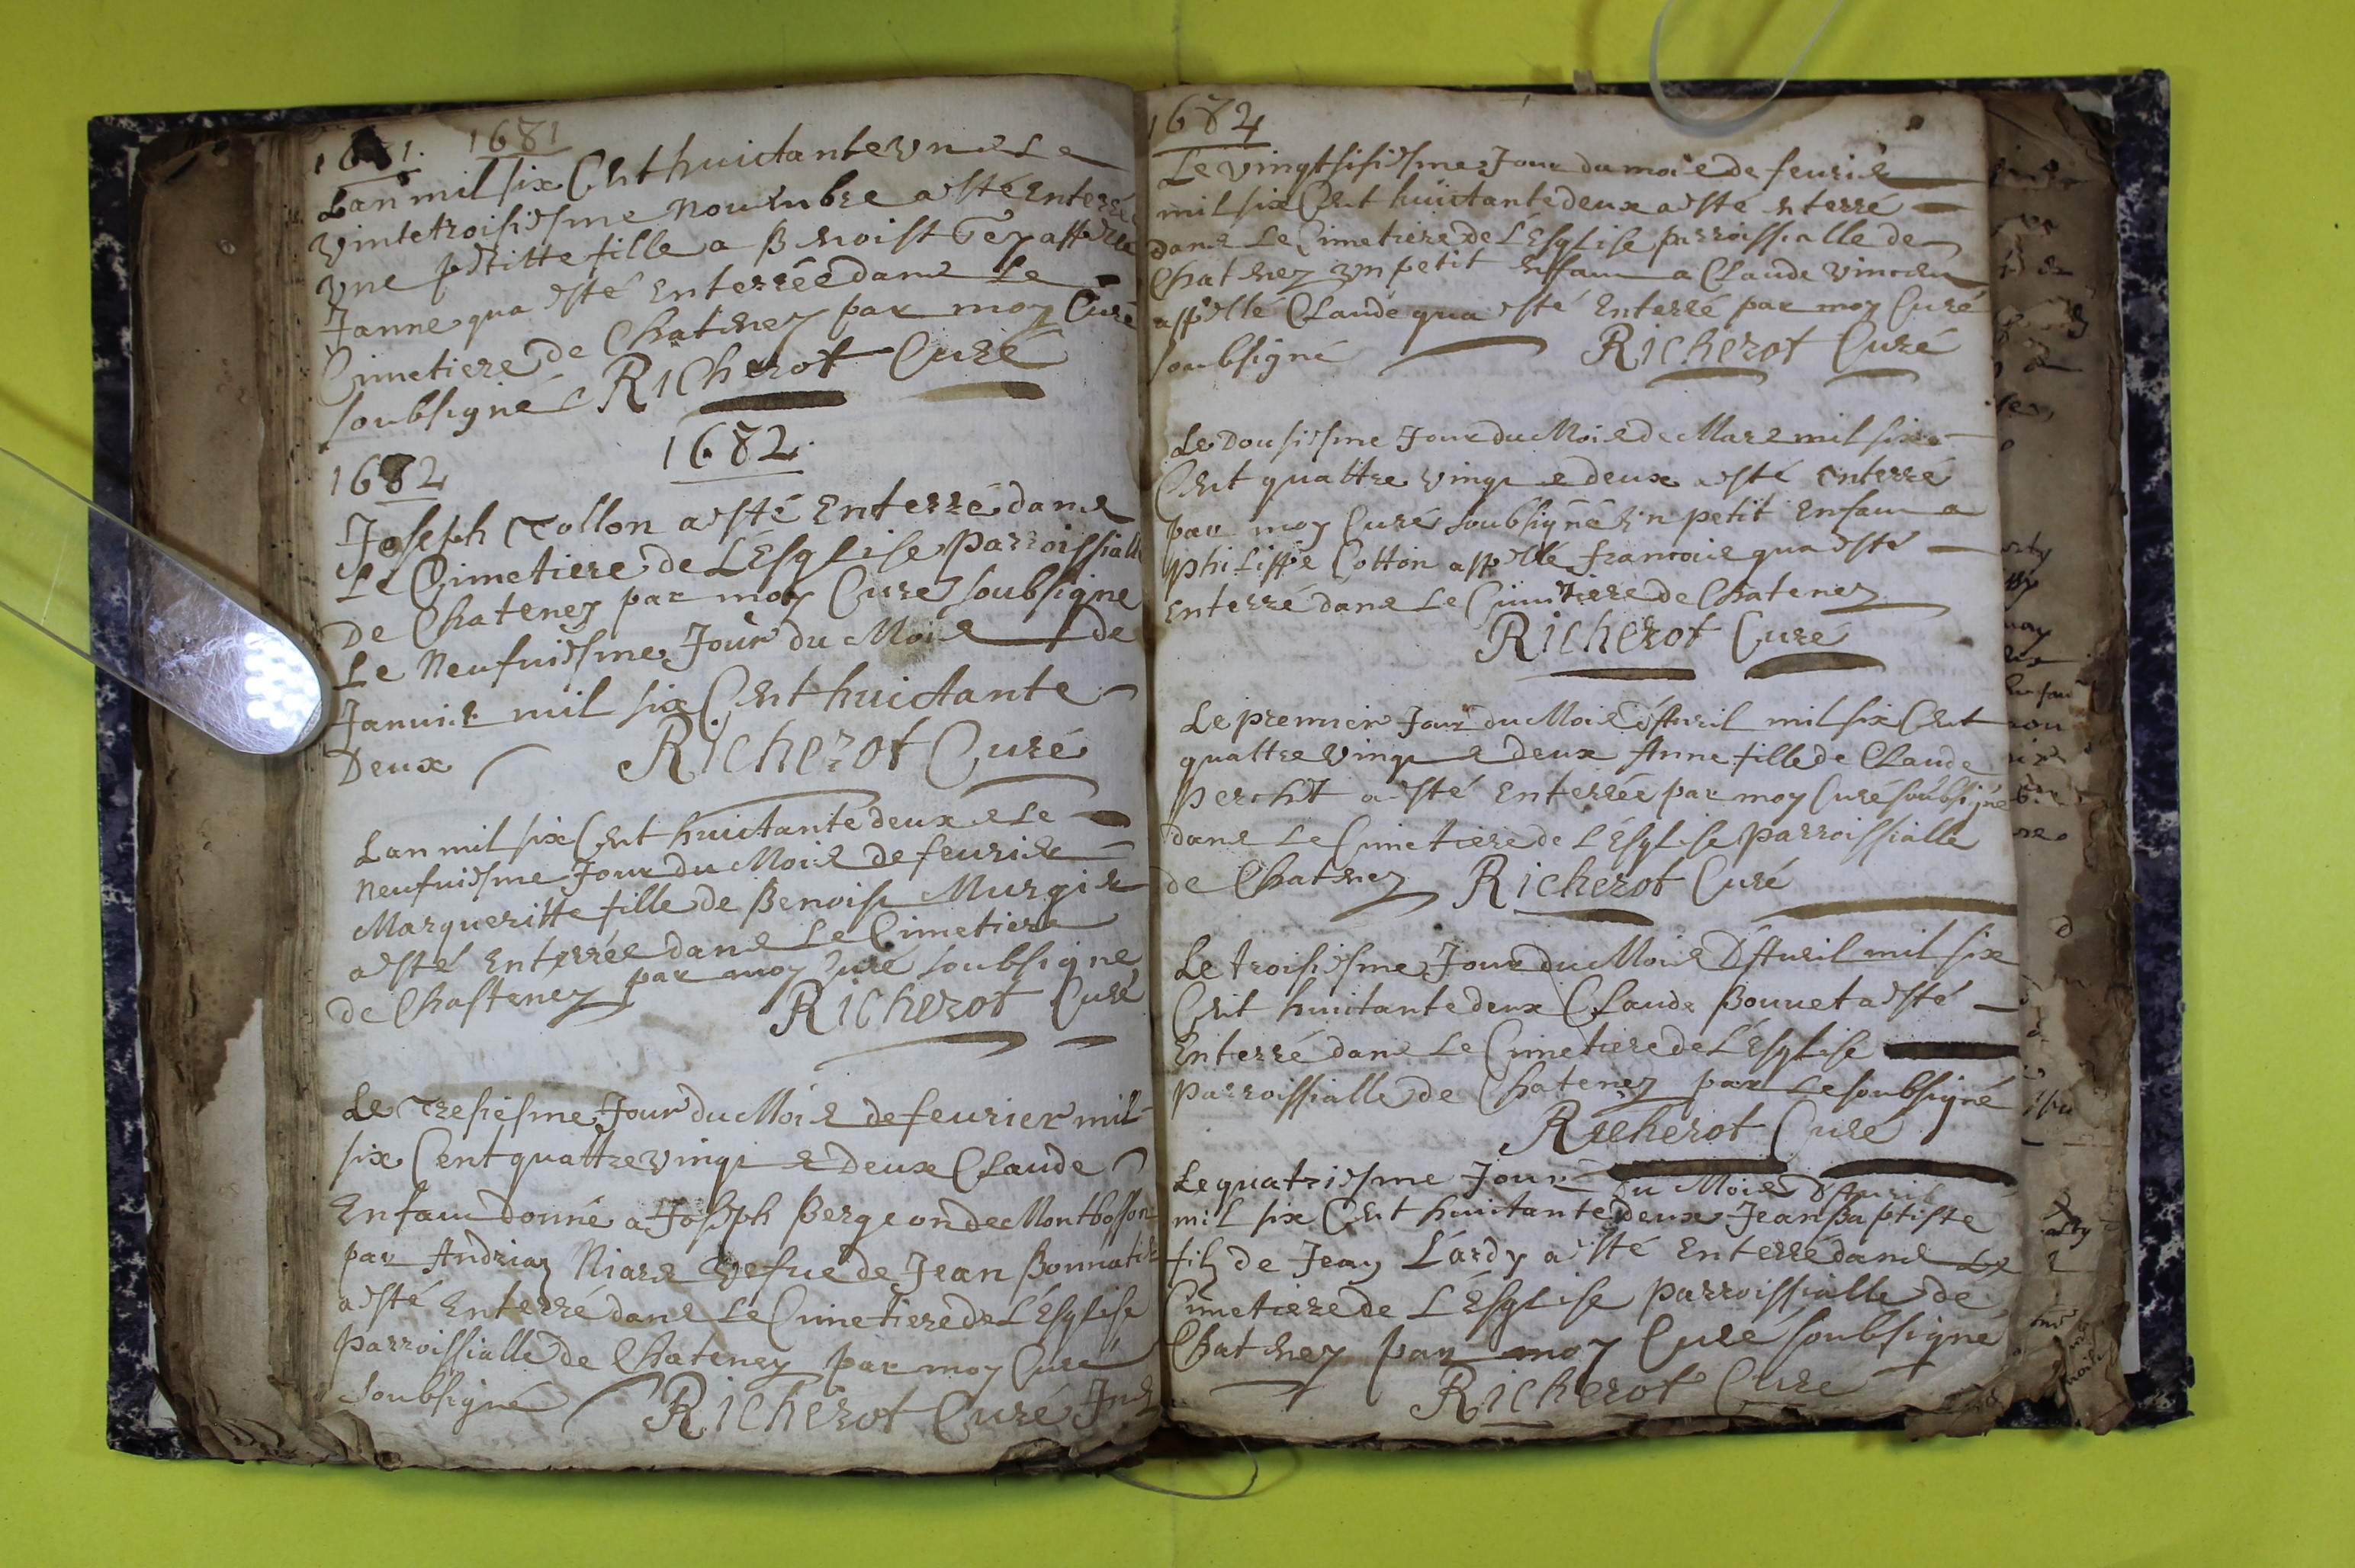 1681. 1681
Lan mil six Cent huictante vn e Le
vintetroisiesme nouembre a esté Enterré
vne petitte fille a Benoist appellé
Janne qua esté Enterrée dans Le
Cimetiere de Chateney par moy Curé
soubsigné Richerot Curé
1682.
1682
Joseph Tollon a esté Enterré dans
Le Cimetiere de LEsglise parroissialle
De Chateney par moy Curé soubsigne
Le Neufuiesme Jour du Mois de
Januier mil six Cent huictante
Deux Richerot Curé
Lan mil six Cent huictante deux e Le
Neufuiesme Jour du Mois de feurier
Margueritte fille de Benoist Murgier
a esté Enterrée dans Le Cimetiere
de Chasteney par moy Curé soubsigne
Richerot Curé
Le Tresiesme Jour du Mois de feurier mil
six Cent quattre vingt e deux Claude
Enfant donné a Joseph Bergeon de Montbosson
par Andriaz Niard vefue de Jean Bonnatier
a esté Enterré dans Le Cimetiere de LEsglise
parroissialle de Chateney par moy Curé
soubsigné Richerot Curé
1682
Le vingtsisiesme Jour du mois de feurier
mil six Cent huictante deux a esté enterré
dans Le Cimetiere de LEsglise parroissialle de
Chateney vn petit enfant a Claude vincent
appellé Claude qua esté Enterré par moy Curé
soubsigné Richerot Curé
Le Dousiesme Jour du Mois de Mars mil six
Cent quattre vingt e deux a esté enterré
par moy Curé soubsigné vn petit Enfant a
philippe Cotton appellé francois qua esté
Enterré dans Le Cimetiere de Chateney
Richerot Curé
Le premier Jour du Mois d'Auril mil six Cent
quattre vingt e deux Anne fille de Claude
perchet a esté Enterrée par moy Curé soubsigné
dans Le Cimetiere de LEsglise parroissialle
de Chateney Richerot Curé
Le troisiesme Jour du Mois D'Auril mil six
Cent huictante deux Claude Bouuet a esté
Enterré dans Le Cimetiere de LEsglise
parroissialle de Chateney par Le soubsigné
Richerot Curé
Le quatriesme Jour du Mois D'Auril
mil six Cent huictante deux Jean Baptiste
filz de Jean Lardy a esté Enterré dans Le
Cimetiere de LEsglise parroissialle de
Chateney par moy Curé soubsigné
Richerot Curé